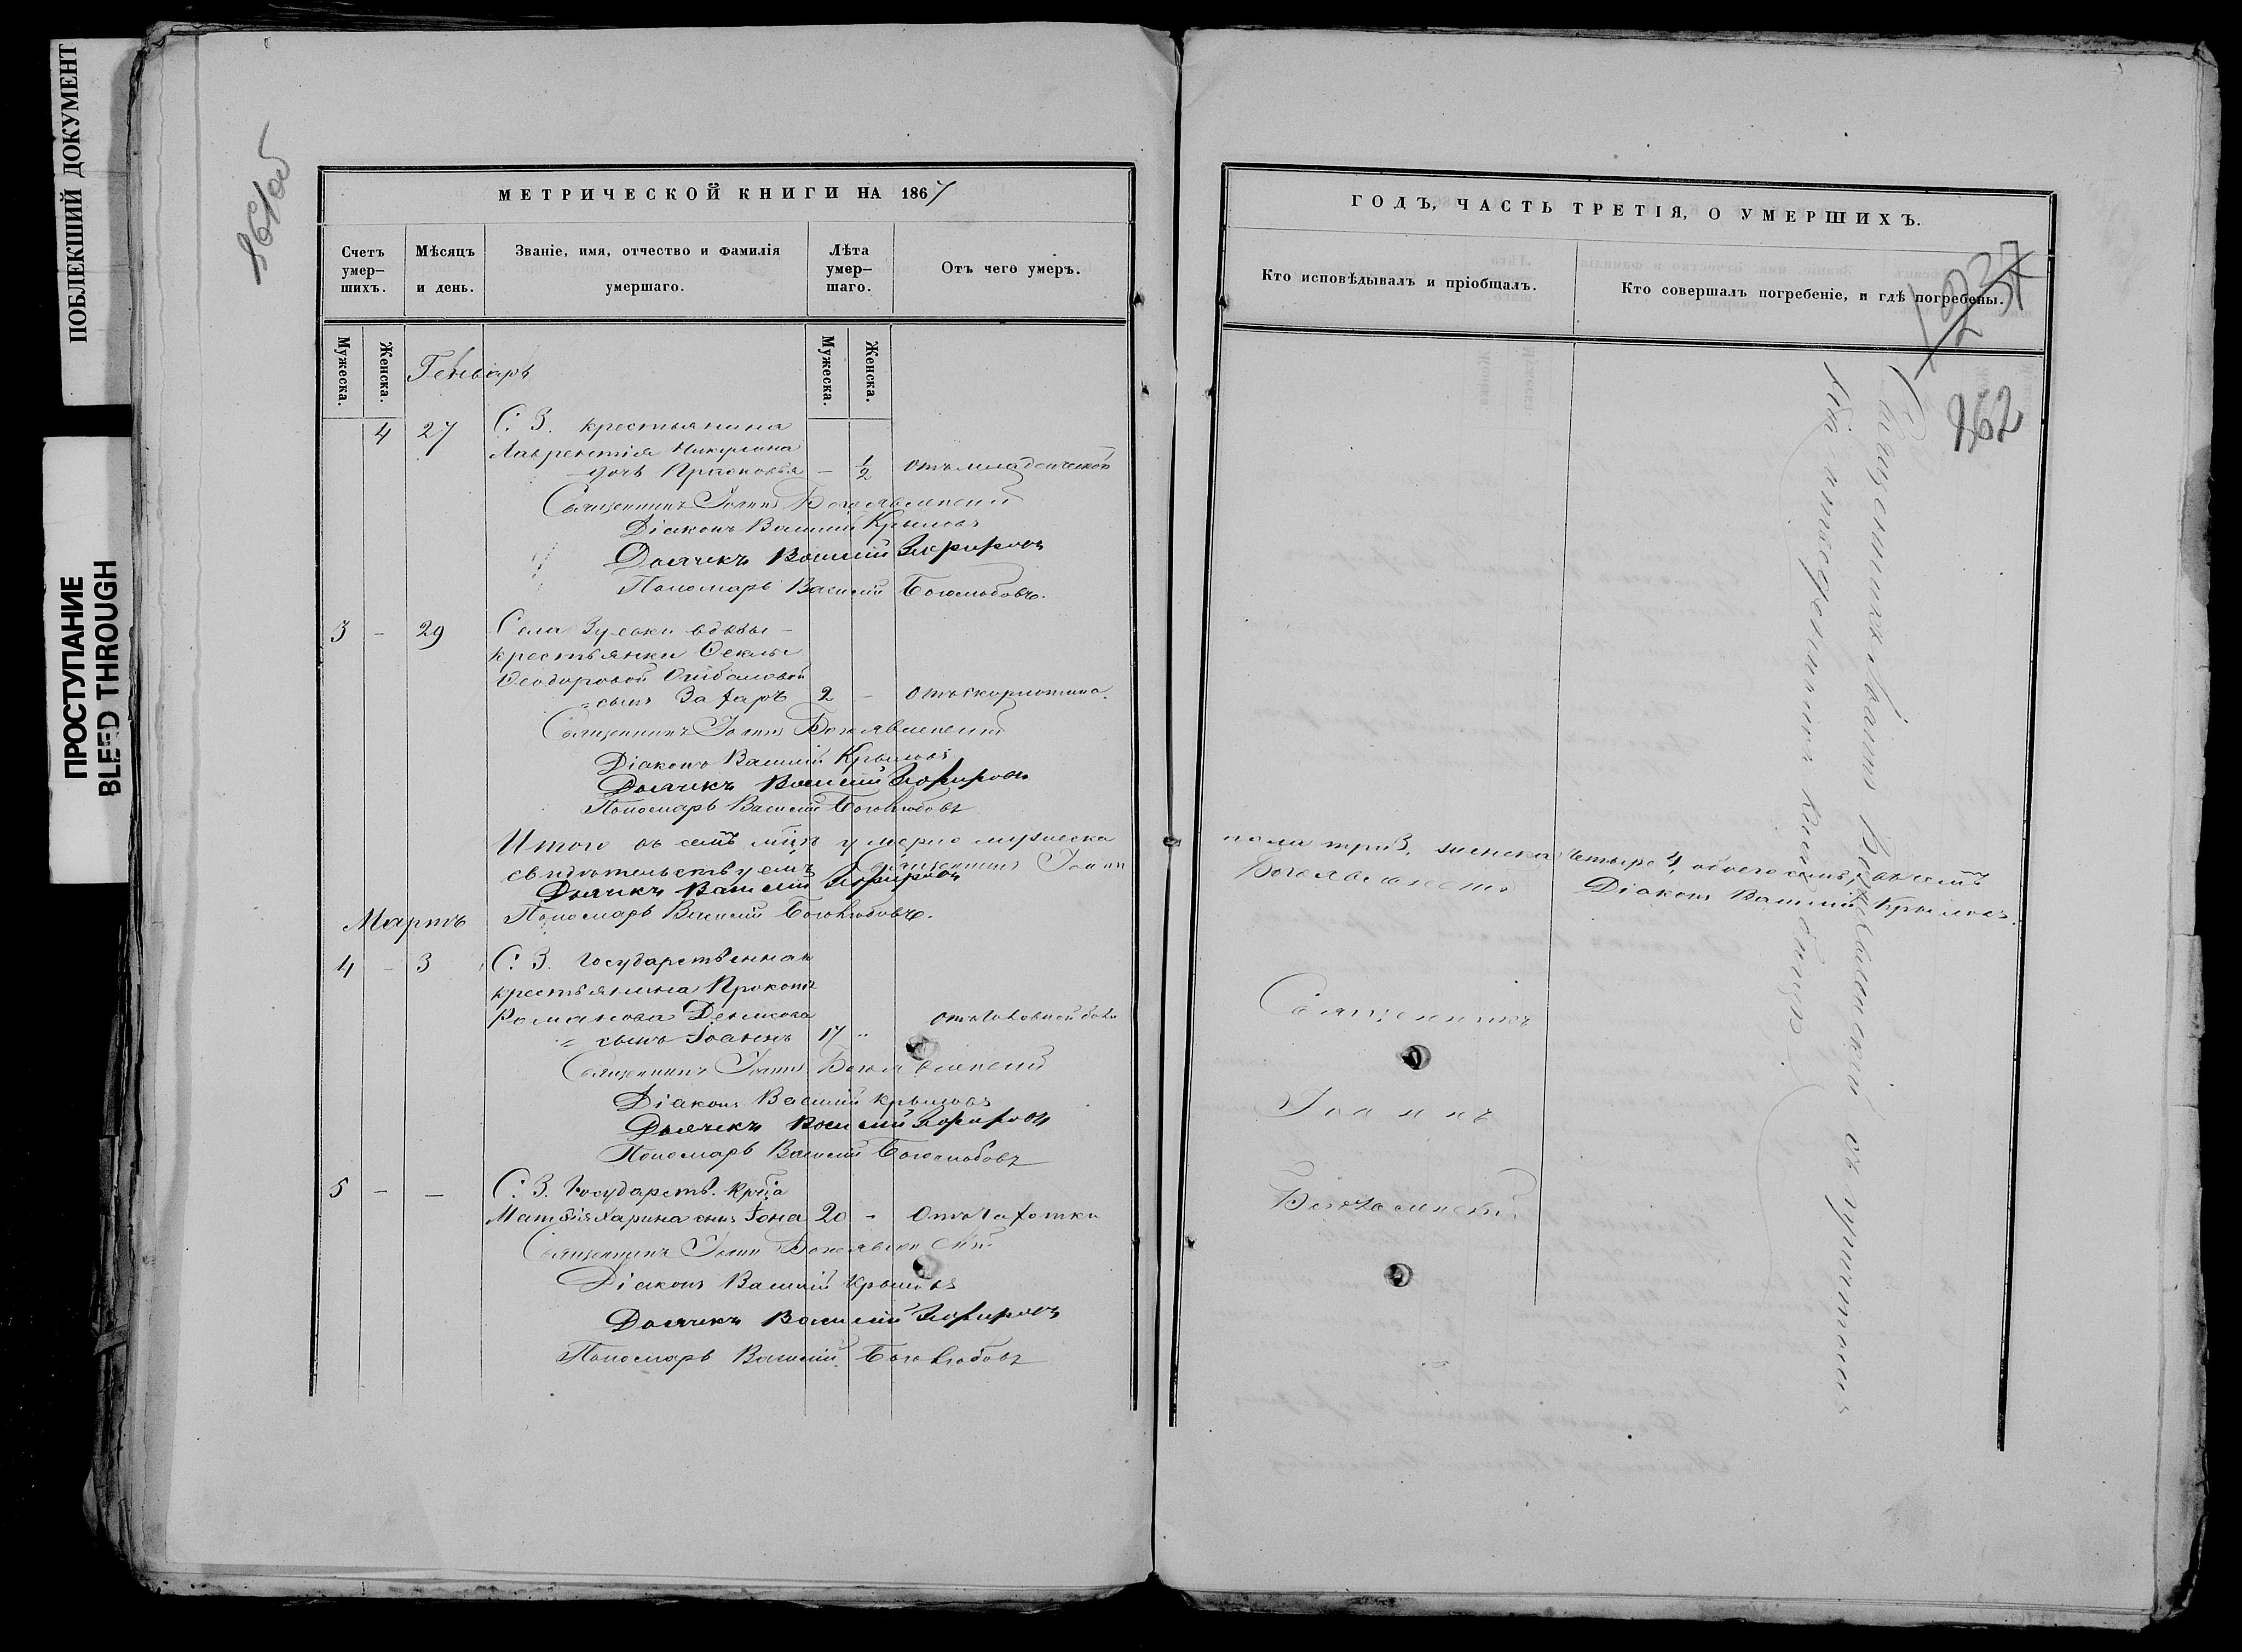 ПОБЛЕКШИЙ ДОКУМЕНТ
ПРОСТУПАНИЕ
BLEED THROUGH
861об
МЕТРИЧЕСКОЙ КНИГИ НА 1867
Счетъ умер-шихъ.
Мѣсяцъ и день.
Званіе, имя, отчество и фамилія умершаго.
Лѣта умер-шаго.
Отъ чего умеръ.
Мужеска.
Женска.
Мужеска.
Женска.
Генварь
4 27 С. З. крестьянина
Лаврентія Никулина
дочь Прасковья — 1/2 Отъ младенческой
Священникъ Іоаннъ Богоявленскій
Діаконъ Василій Крыловъ
Дьячекъ Василій
Пономарь Василій Боголюбовъ.
3 – 29 Села Зуевки вдовы –
крестьянки Ѳеклы
Ѳеодоровой
сынъ Захаръ 2 –
Священникъ Іоаннъ Богоявленскій
Діаконъ Василій Крыловъ
Дьячекъ Василій
Пономарь Василій Боголюбовъ
Итого въ семъ мцѣ умерло мужеска
свидѣтельствуемъ Священникъ Іоаннъ
Дьячекъ Василій
Пономарь Василій Боголюбовъ.
Мартъ
4 – 3 С. З. Государственнаго
крестьянина Прокопія
Романова Денисова
сынъ Іоаннъ 17 " Отъ головной боли
Священникъ Іоаннъ Богоявленскій
Діаконъ Василій Крыловъ
Дьячекъ Василій
Пономарь Василій Боголюбовъ
5 – – С. З. Государств. крест.
Матѳія Харина сынъ Іона 20 – Отъ чахотки
Священникъ Іоаннъ Богоявленскій
Діаконъ Василій Крыловъ
Дьячекъ Василій
Пономарь Василій Боголюбовъ
ГОДЪ, ЧАСТЬ ТРЕТІЯ, О УМЕРШИХЪ.
Кто исповѣдывалъ и пріобщалъ.
Кто совершалъ погребеніе, и гдѣ погребены.
862
пола три 3, женска четыре 4, обоего семь 7, въ семъ
Богоявленскій Діаконъ Василій Крыловъ.
Священникъ
Іоаннъ
Богоявленскій
Священникъ Іоаннъ Богоявленскій съ причтомъ